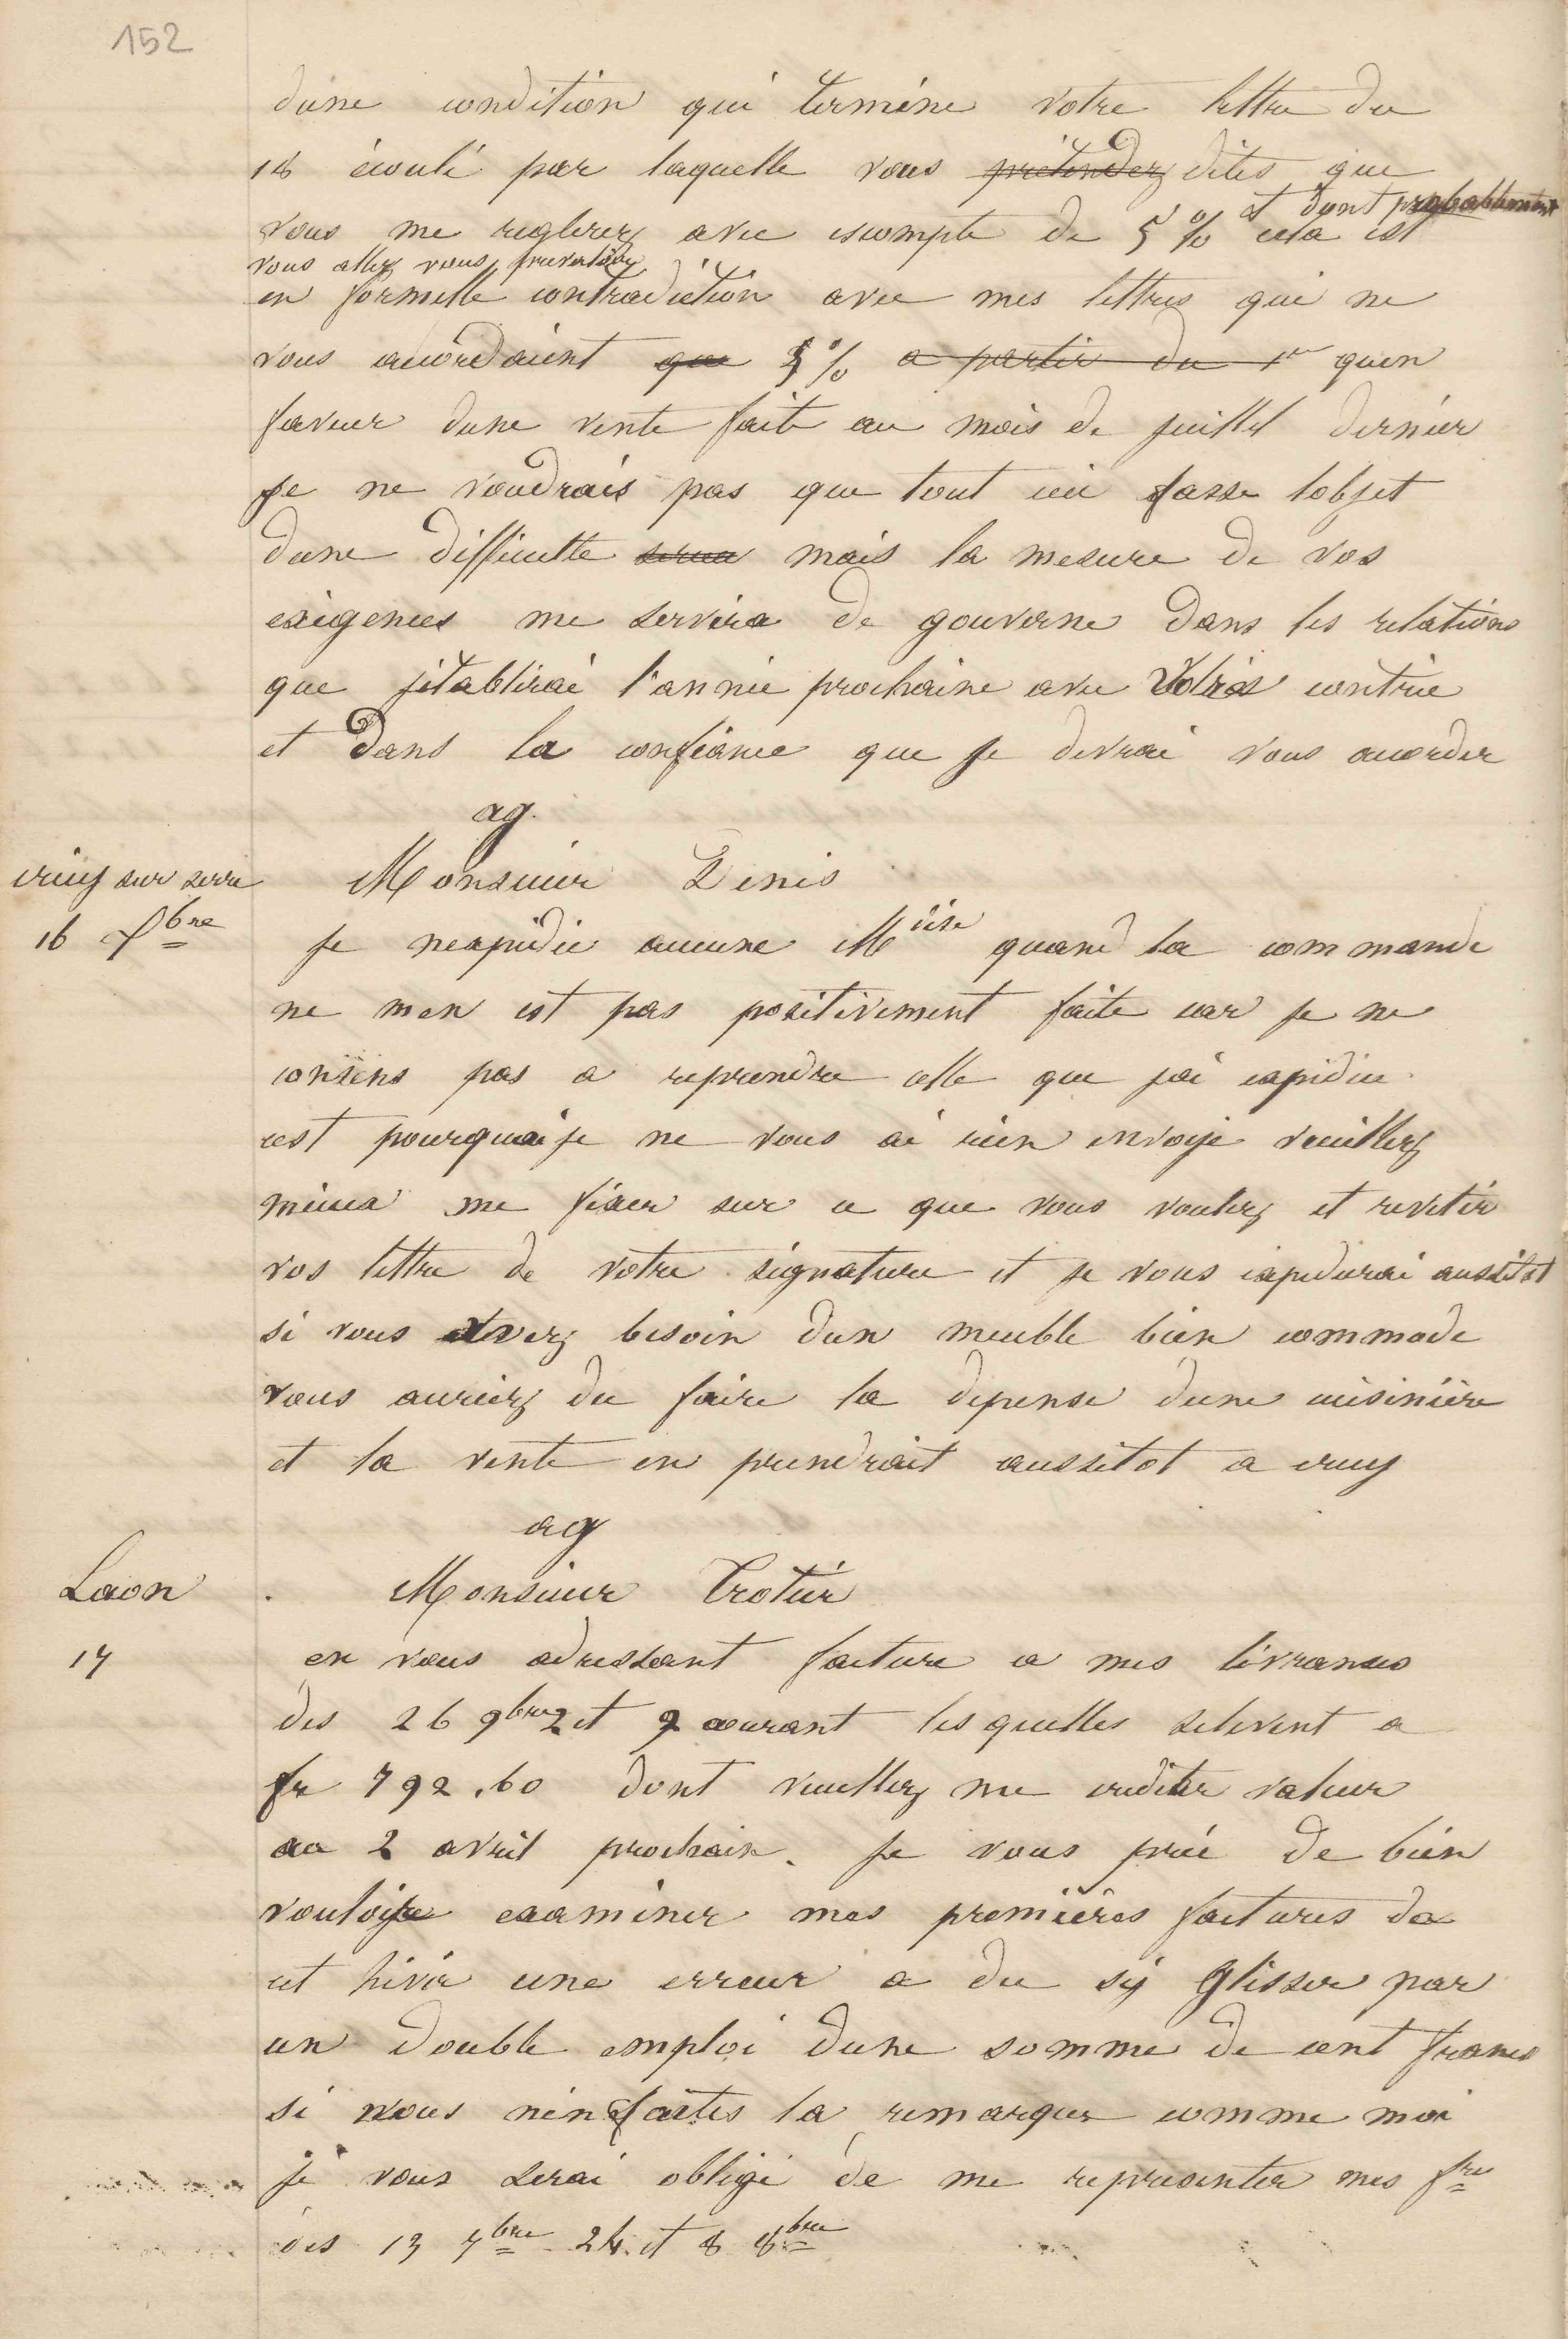 152
dune condition qui termine votre lettre du
18 écoulé par laquelle vous prétendez dites que
et dont probablement
vous me reglerez avec escompte de 5 % cela est
vous allez vous prevaloir
en formelle contradiction avec mes lettres qui ne
vous accordaient que 5 % a partir du 1er quen
faveur dune vente faite au mois de juillet dernier
Je ne voudrais pas que tout ceci fasse lobjet
dune difficulte mais la mesure de vos
exigences me servira de gouverne dans les relations
que jétablirai l'année prochaine avec contrée
et dans la confiance que je devrai vous accorder
ag.
crecy sur serre
Monsieur Denis
16 Xbre
Je nexpédie aucune Mdise quand la commande
ne men est pas positivement faite car je ne
consens pas a reprendre celle que jai expediee
cest pourquoi je ne vous ai rien envoye veuillez
mieux me fixer sur ce que vous voulez et revetir
vos lettre de votre signature et je vous expedierai aussitot
si vous avez besoin dun meuble bien commode
vous auriez du faire la depense dune cuisinière
et la vente en prendrait aussitot a crecy
ag
Laon
Monsieur Trotier
17
en vous adressant facture a mes livrances
des 26 9bre 2 et 9 courant les quelles selevent a
fr 792.60 dont veuillez me crediter valeur
au 2 avril prochain. Je vous prie de bien
vouloir examiner mes premières factures de
cet hiver une erreur a du sy glisser par
un double emploi dune somme de cent francs
si vous nen faites la remarque comme moi
je vous serai obligé de me representer mes fres
des 13 7bre 24 et 8 8bre